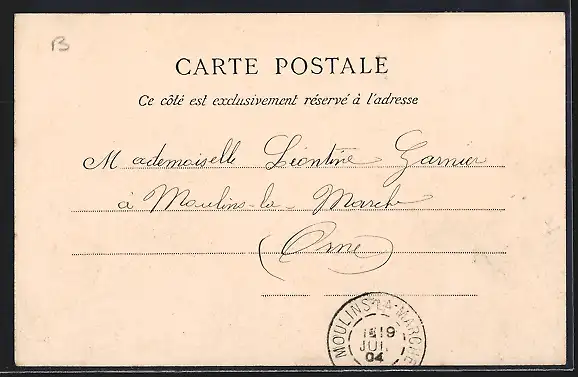 B
CARTE POSTALE
Ce côté est exclusivement réservé à l'adresse
Mademoiselle Léontine Garnier
à Moulins-la-Marche
(Orne)
MOULINS-LA-MARCHE
19
JUIL
04